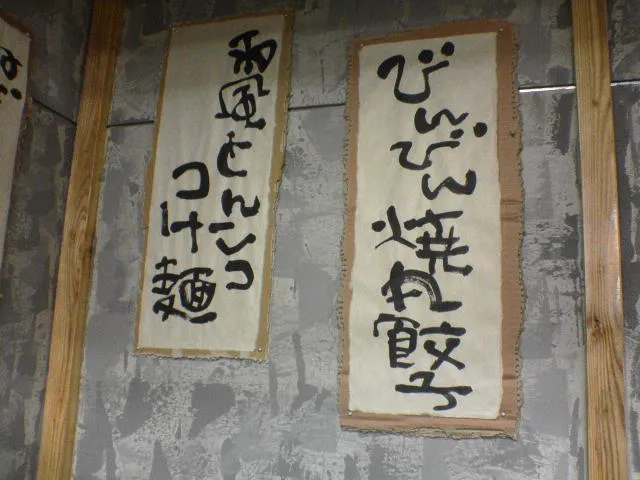 びんびん焼き餃子
和風とんこつ
つけ麺